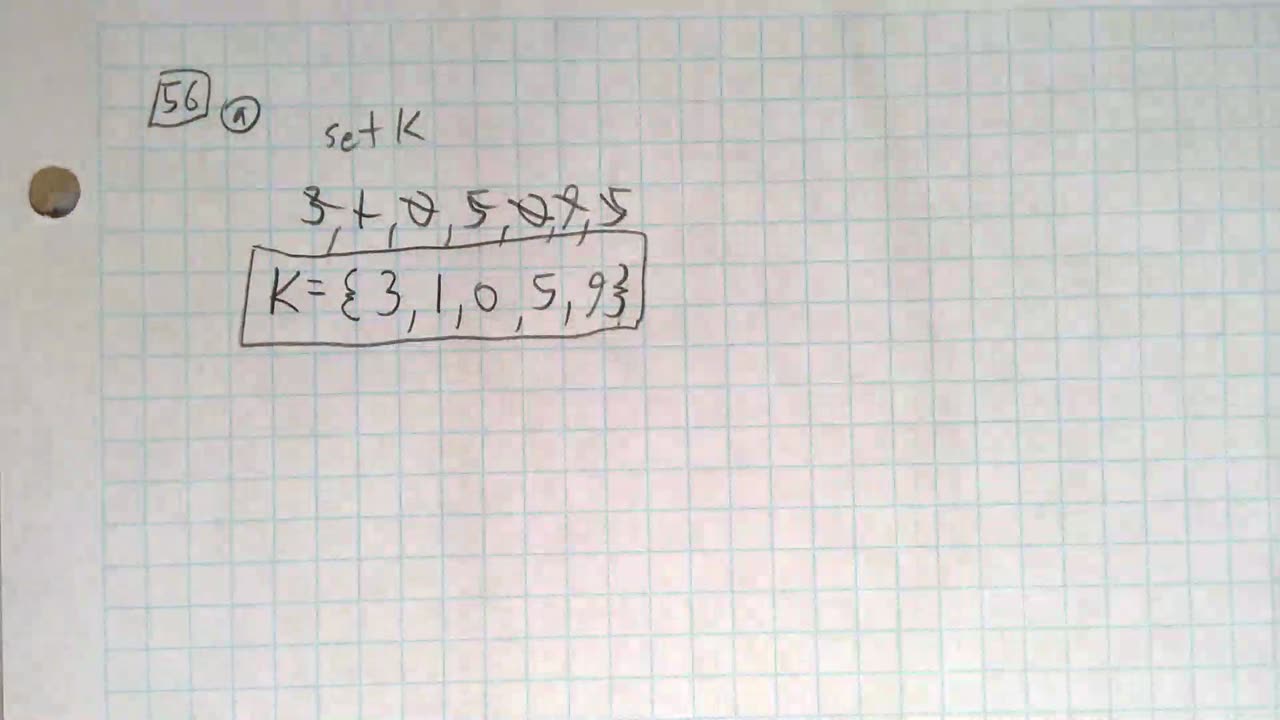 56 a
set K
3, 1, 0, 5, 0, 9, 5
K = {3, 1, 0, 5, 9}